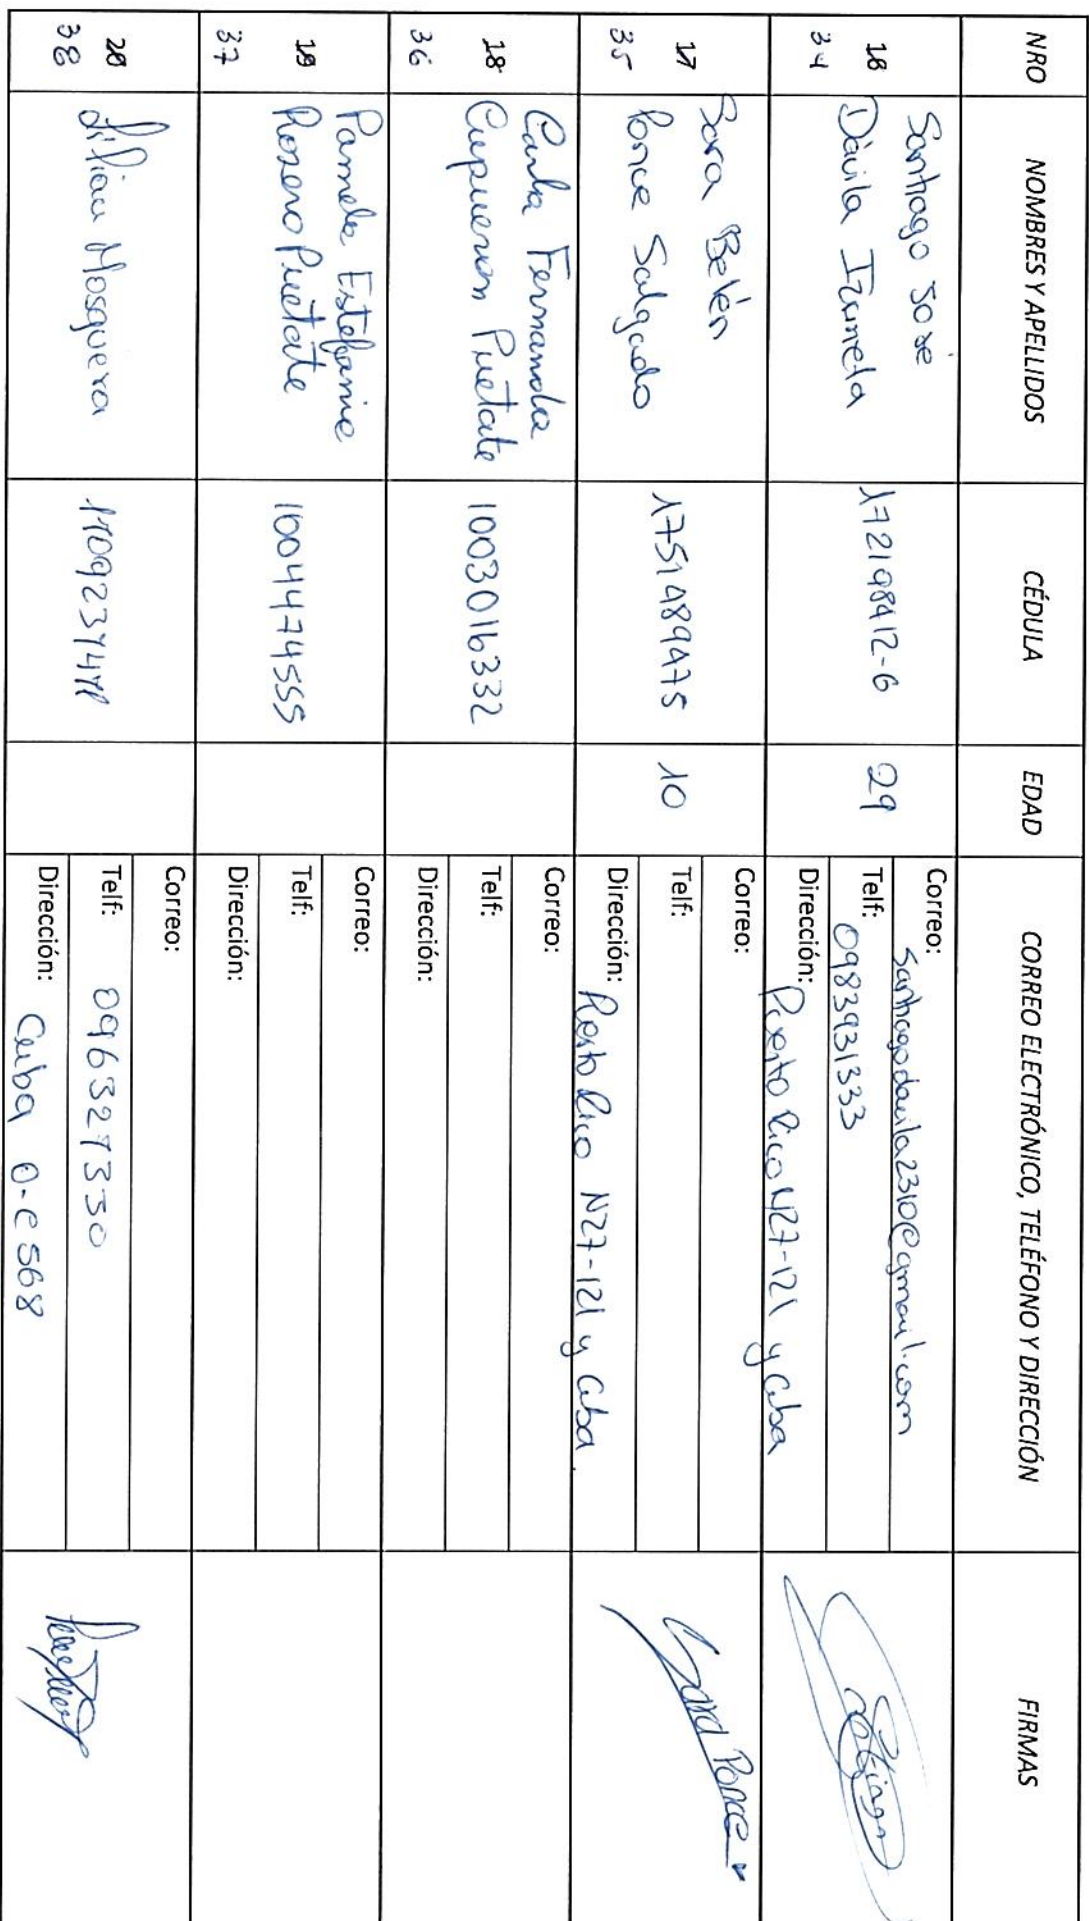 NRO NOMBRES Y APELLIDOS CÉDULA EDAD CORREO ELECTRÓNICO, TELÉFONO Y DIRECCIÓN FIRMAS
16
34
Santiago José
Dávila Izurieta
172198412-6
29
Correo: santiagodavila2310@gmail.com
Telf: 0983931333
Dirección: Puerto Rico N27-121 y Cuba
17
35
Sara Belén
Ponce Salgado
1751489475
10
Correo:
Telf:
Dirección: Puerto Rico N27-121 y Cuba.
Sara Ponce
18
36
Carla Fernanda
Cupueran Puetate
1003016332
Correo:
Telf:
Dirección:
19
37
Pamela Estefanie
Rosero Puetate
1004474555
Correo:
Telf:
Dirección:
20
38
Lilian Mosquera
Correo:
Telf: 096327330
Dirección: Cuba O-e 568